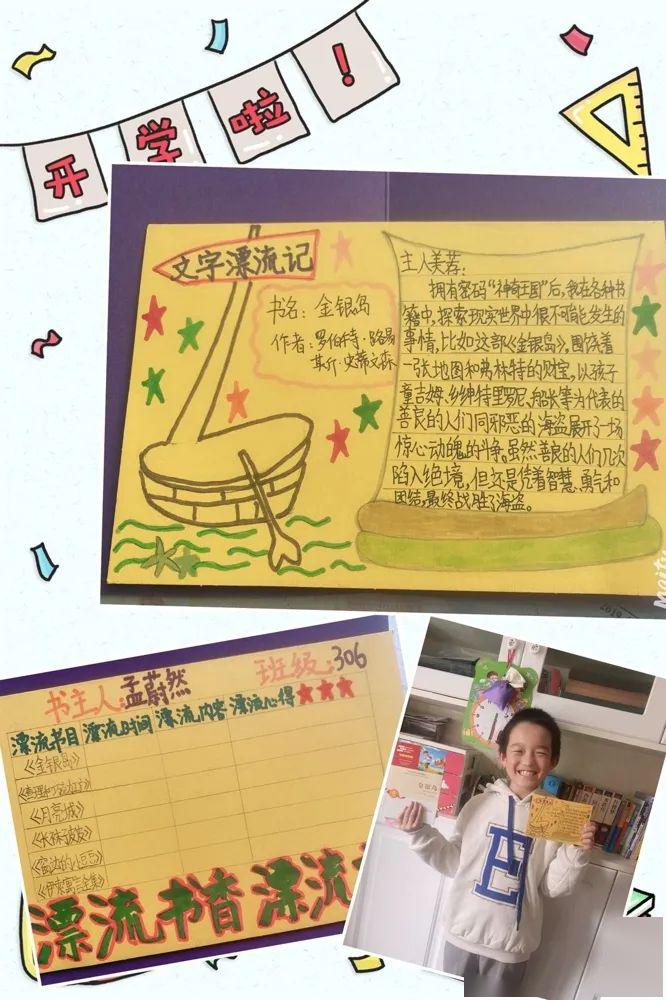 开学啦!
文字漂流记
书名:金银岛
作者:罗伯特·路易
斯·史蒂文森
主人美荐:
拥有密码“神奇王国”后,我在各种书
籍中,探索现实世界中很不可能发生的
事情,比如这部《金银岛》,围绕着
一张地图和弗林特的财宝,以孩子
童吉姆、乡绅特里罗尼、船长等为代表的
善良的人们同邪恶的海盗展开了一场
惊心动魄的斗争。虽然善良的人们几次
陷入绝境,但还是凭着智慧、勇气和
团结,最终战胜了海盗。
2019
书主人:孟蔚然 班级:306
漂流书目 漂流时间 漂流内容 漂流心得
《金银岛》
《月亮城》
《长袜子皮皮》
《窗边的小豆豆》
《伊索寓言全集》
漂流书香 漂流
金银岛
E